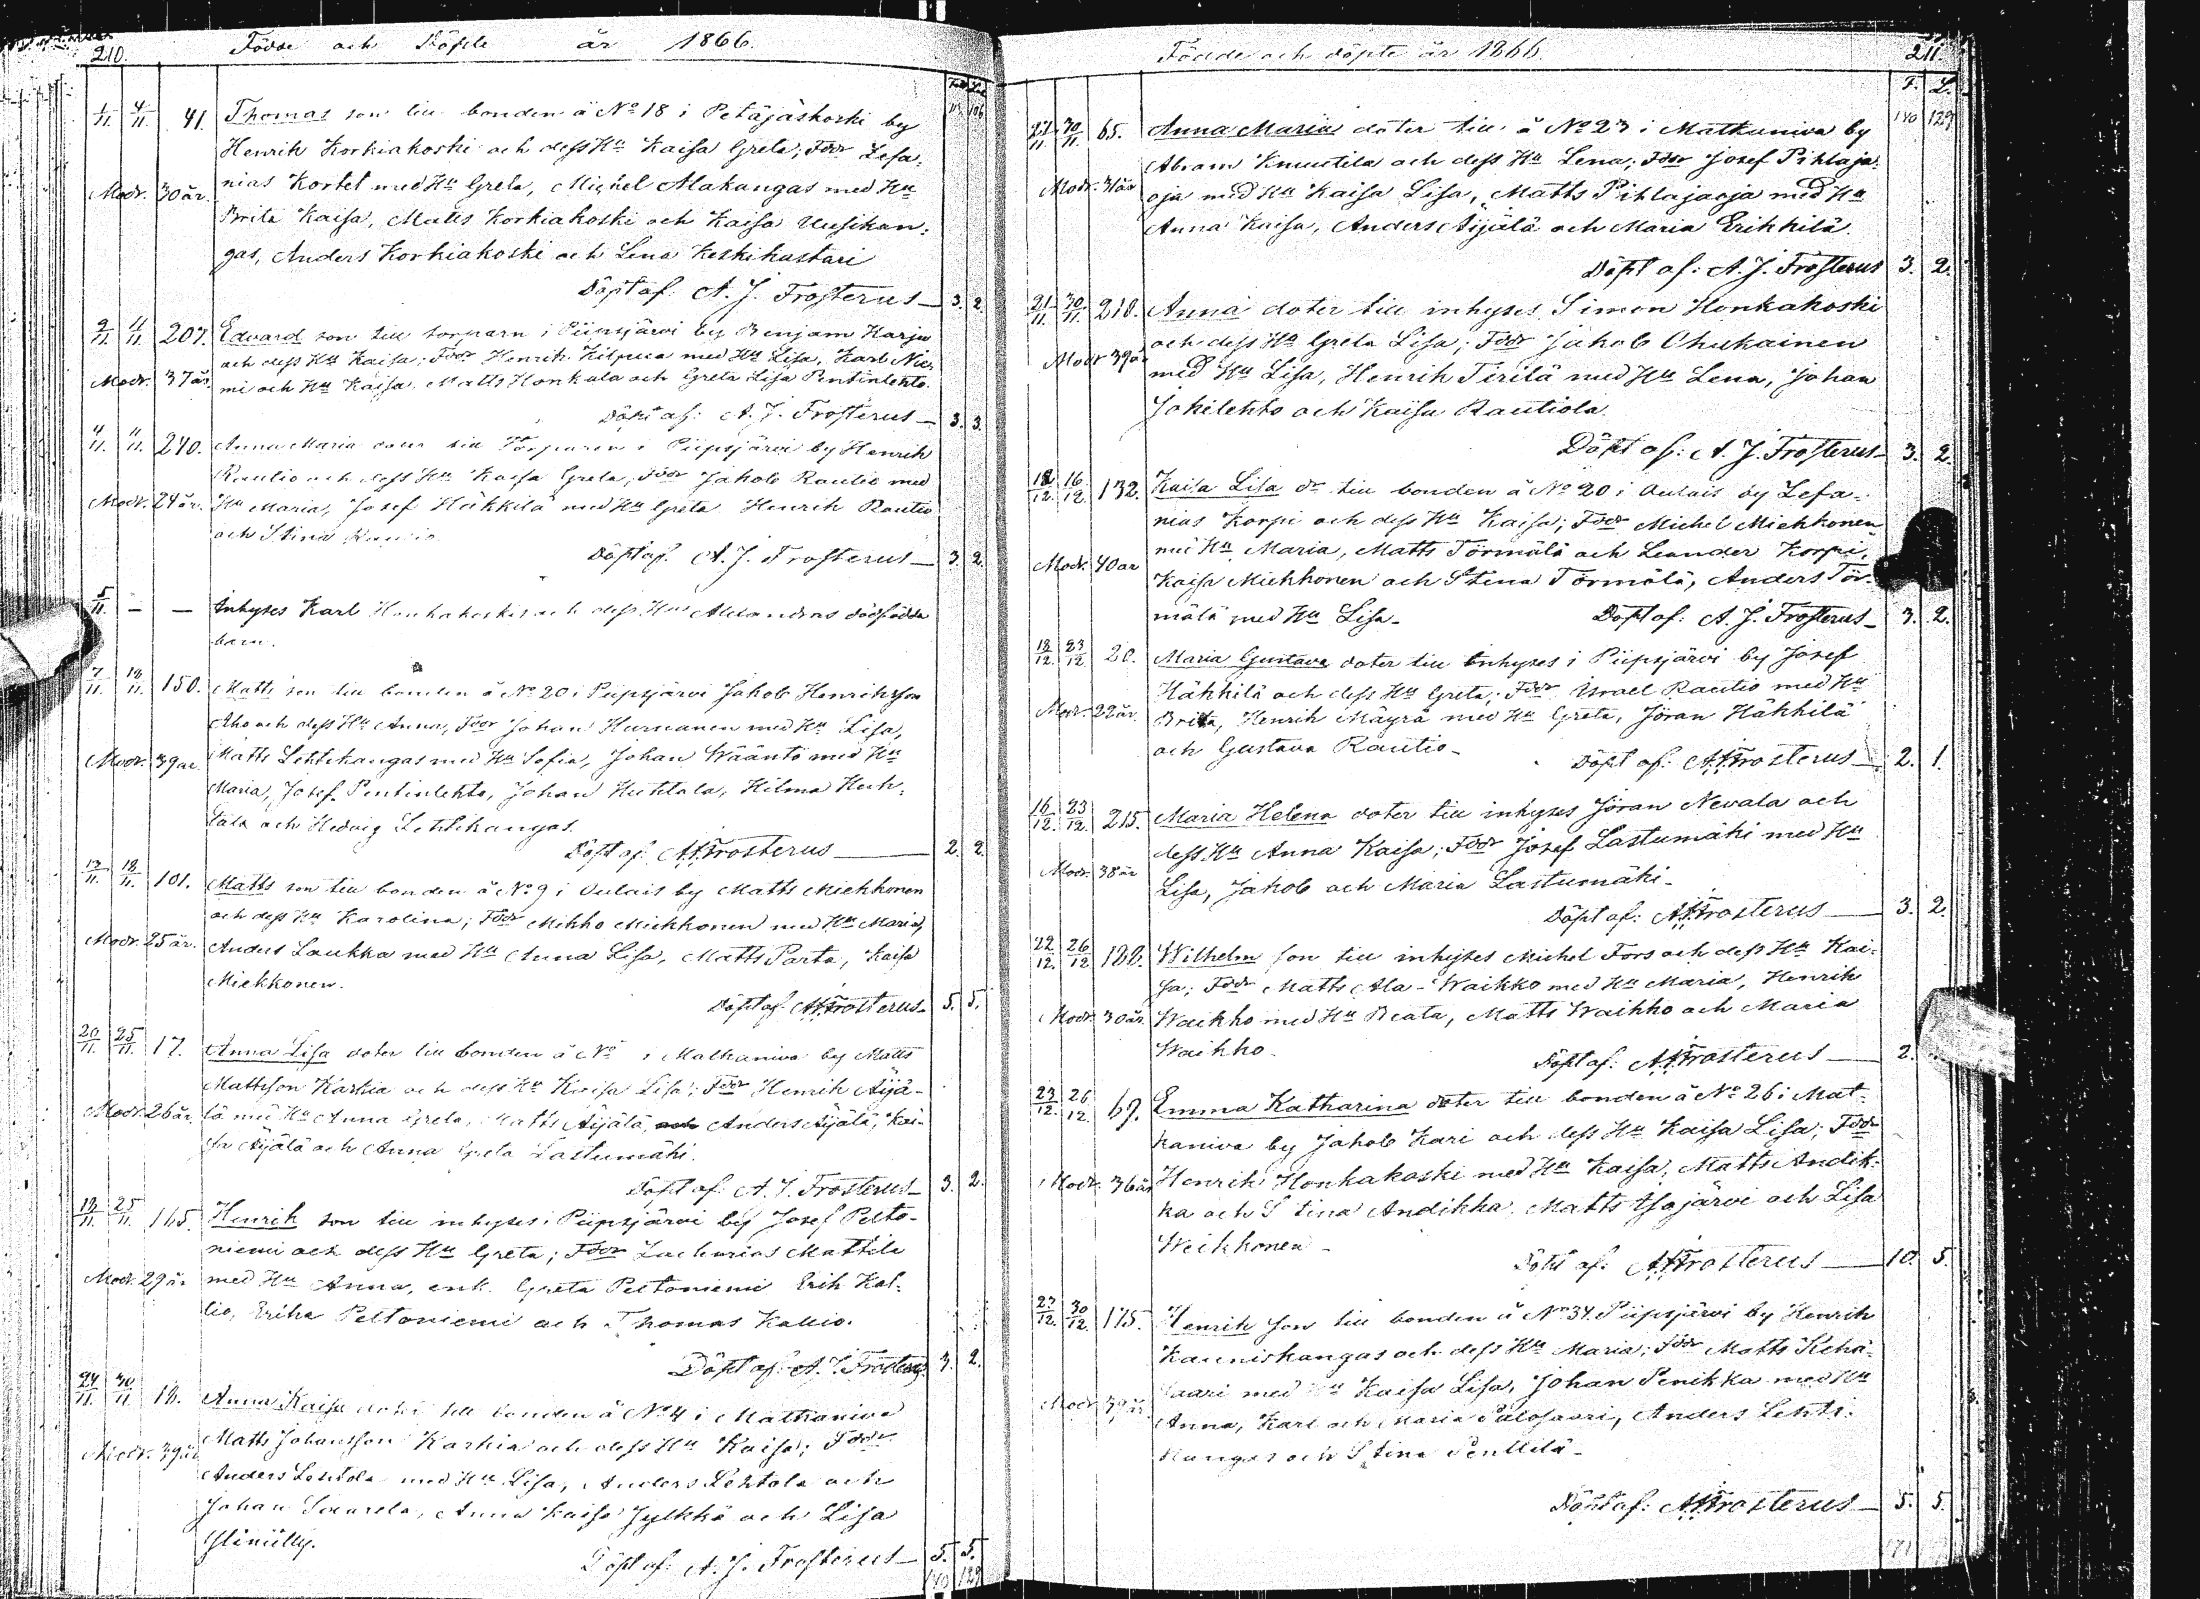 210.
Födde och Döpte år 1866.
1/11. 4/11. 41. Thomas son till bonden å No 18 i Petäjäskoski by
Henrik Korkiakoski och dess Hu Kaisa Greta; Fddr Zefa-
Modr. 30 år. nias Kortet med Hu Greta, Michel Alakangas med Hu
Brita Kaisa, Matts Korkiakoski och Kaisa Uusikan-
gas, Anders Korkiakoski och Lena Keskikastari
Döpt af: A. J. Frosterus 3. 2.
2/11. 4/11. 207. Edvard son till torparn i Piipsjärvi by Benjam Harju
och dess Hu Kaisa; Fddr Henrik Kilpua med Hu Lisa, Karl Nie-
Modr. 37 år. mi och Hu Kaisa, Matts Honkala och Greta Lisa Pentinlehto.
Döpt af: A. J. Frosterus 3. 3.
4/11. 11. 240. Anna Maria doter till Torparen i Piipsjärvi by Henrik
Rautio och dess Hu Kaisa Greta; Fddr Jakob Rautio med
Modr. 24 år. Hu Maria, Josef Häkkilä med Hu Greta Henrik Rautio
och Stina Rautio
Döpt af. A. J. Frosterus 3. 2.
5/11. — — Inhyses Karl Honkakoskis och dess Hus Alexandras dödfödda
barn.
7/11. 18/11. 150. Matts son till bonden å No 20 i Piipsjärvi Jakob Henriksson
Aho och dess Hu Anna, Fddr Johan Hurnanen med Hu Lisa,
Modr. 39 år. Matts Lehtikangas med Hu Sofia, Johan Wääntö med Hu
Maria, Josef Pentinlehto, Johan Huhtala, Hilma Huh-
tala och Hedvig Lehtikangas.
Döpt af: A. J. Frosterus 2. 2.
13/11. 18/11. 101. Matts son till bonden å No 9 i Oulais by Matts Miekkonen
och dess Hu Karolina; Fddr Mikko Miekkonen med Hu Maria,
Modr. 25 år. Anders Laukka med Hu Anna Lisa, Matts Parta, Kaisa
Miekkonen.
Döpt af: A. J. Frosterus 5. 5.
20/11. 25/11. 17. Anna Lisa doter till bonden å No i Matkaniva by Matts
Mattsson Karhia och dess Hu Kaisa Lisa; Fddr Henrik Äijä-
Modr. 26 år. lä med Hu Anna Greta, Matts Äijälä, Anders Äijälä, Kai-
sa Äijälä och Anna Greta Lastumäki.
Döpt af: A. J. Frosterus 3. 2.
19/11. 25/11. 165. Henrik son till inhyses i Piipsjärvi by Josef Pelto-
niemi och dess Hu Greta; Fddr Zacharias Mattila
Modr. 29 år med Hu Anna, enk. Greta Peltoniemi Erik Kal-
lio, Erika Peltoniemi och Thomas Kallio.
Döpt af: A. J. Frosterus 3. 2.
24/11. 30/11. 18. Anna Kaisa doter till bonden å No 4 i Matkaniva
Matts Johansson Karhia och dess Hu Kaisa; Fddr
Modr. 39 år Anders Lehtola med Hu Lisa, Anders Lehtola och
Johan Saarela, Anna Kaisa Jylkkä och Lisa
Ylimylly.
Döpt af: A. J. Frosterus 5. 5.
140 129
Födde och döpte år 1866. 211.
F. L.
140 129
22/11. 30/11. 65. Anna Maria doter till å No 23 i Matkaniva by
Abram Knuutila och dess Hu Lena; Fddr Josef Pihlaja-
Modr. 31 år oja med Hu Kaisa Lisa, Matts Pihlajaoja med Hu
Anna Kaisa, Anders Äijälä och Maria Erikkilä.
Döpt af: A. J. Frosterus 3. 2.
21/11. 30/11. 218. Anna doter till inhyses Simon Honkakoski
och dess Hu Greta Lisa; Fddr Jakob Ohukainen
Modr 39 år med Hu Lisa, Henrik Tirilä med Hu Lena, Johan
Jokilehto och Kaisa Rautiola.
Döpt af: A. J. Frosterus 3. 2.
12. 16/12. 132. Kaisa Lisa dr till bonden å No 20 i Oulais by Zefa-
nias Korpi och dess Hu Kaisa; Fddr Michel Miekkonen
Modr. 40 år med Hu Maria, Matts Törmälä och Leander Korpi,
Kaisa Miekkonen och Stina Törmälä, Anders Tör-
mälä med Hu Lisa. Döpt af: A. J. Frosterus 3. 2.
12. 23/12. 20. Maria Gustava doter till inhyses i Piipsjärvi by Josef
Häkkilä och dess Hu Greta; Fddr Israel Rautio med Hu
Modr. 22 år. Brita, Henrik Mäyrä med Hu Greta, Jöran Häkkilä
och Gustava Rautio.
Döpt af: A. J. Frosterus 2. 1.
16/12. 23/12. 215. Maria Helena doter till inhyses Jöran Nevala och
dess Hu Anna Kaisa; Fddr Josef Lastumäki med Hu
Modr. 38 år Lisa, Jakob och Maria Lastumäki.
Döpt af: A. J. Frosterus 3. 2.
22/12. 26/12. 188. Wilhelm son till inhyses Michel Fors och dess Hu Kai-
sa; Fddr Matts Ala-Waikko med Hu Maria, Henrik
Modr. 30 år. Waikko med Hu Beata, Matts Waikko och Maria
Waikko.
Döpt af: A. J. Frosterus 2.
23/12. 26/12. 69. Emma Katharina doter till bonden å No 26 i Mat-
kaniva by Jakob Kari och dess Hu Kaisa Lisa; Fddr
Modr. 36 år Henrik Honkakoski med Hu Kaisa, Matts Andik-
ka och Stina Andikka. Matts Isojärvi och Lisa
Weikkonen
Döpt af: A. J. Frosterus 10. 5.
23/12. 30/12. 175. Henrik son till bonden å No 34 Piipsjärvi by Henrik
Kauniskangas och dess Hu Maria; Fddr Matts Kehä-
Modr. 39 år saari med Hu Kaisa Lisa, Johan Penikka med Hu
Anna, Karl och Maria Palosaari, Anders Lehti-
kangas och Stina Penttilä.
Döpt af: A. J. Frosterus 5. 5.
171